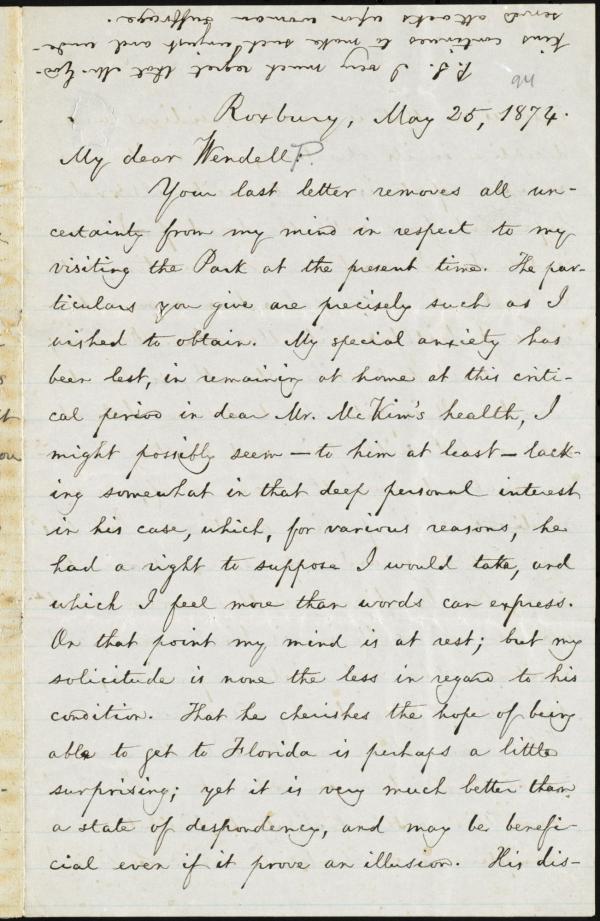 P.S. I very much regret that Mr. Gos-
kins continues to make such unjust and unde-
served attacks upon woman suffrage.
94
Roxbury, May 25, 1874.
My dear Wendell P.
Your last letter removes all un-
certainty from my mind in respect to my
visiting the Park at the present time. The par-
ticulars you give are precisely such as I
wished to obtain. My special anxiety has
been lest, in remaining at home at this criti-
cal period in dear Mr. McKim's health, I
might possibly seem — to him at least — lack-
ing somewhat in that deep personal interest
in his case, which, for various reasons, he
had a right to suppose I would take, and
which I feel more than words can express.
On that point my mind is at rest; but my
solicitude is none the less in regard to his
condition. That he cherishes the hope of being
able to get to Florida is perhaps a little
surprising; yet it is very much better than
a state of despondency, and may be benefi-
cial even if it prove an illusion. His dis-